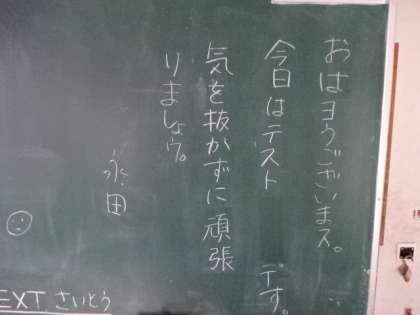 おはヨウございまス。
今日はテスト デす。
気を抜かずに頑張
りましょウ。
永田
EXT さいとう